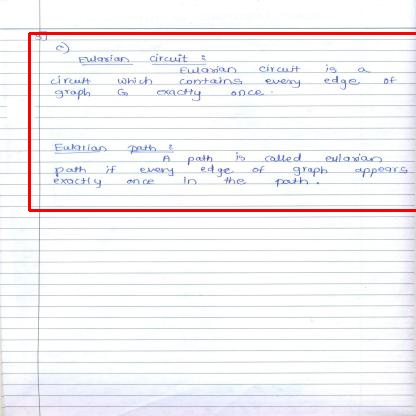 c)
Eularian circuit :
Eularian circuit is a
circuit which contains every edge of
graph G exactly once.
Eularian path :
A path is called eularian
path if every edge of graph appears
exactly once in the path.